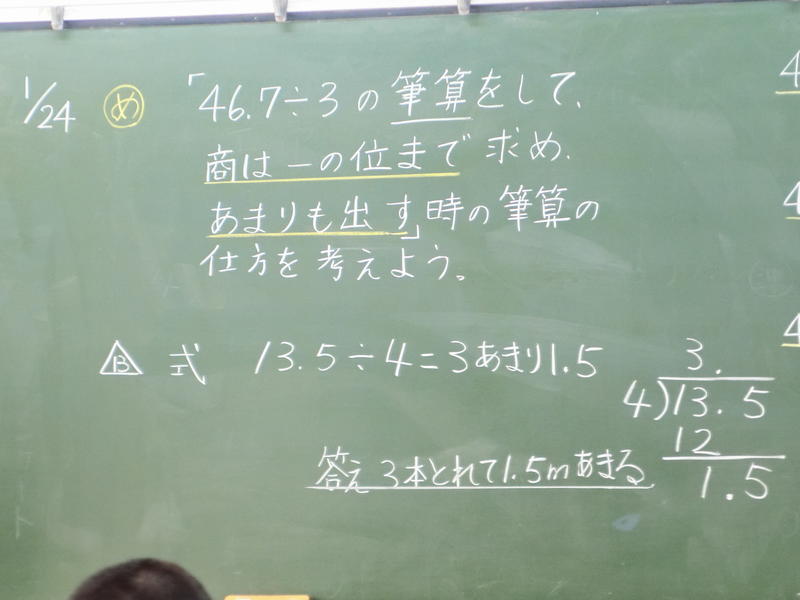 1/24 め 「46.7÷3の筆算をして、
商は一の位まで求め、
あまりも出す」時の筆算の
仕方を考えよう。
B 式 13.5÷4=3あまり1.5
答え 3本とれて1.5mあまる
3.
4)13.5
12
1.5
4
4
4